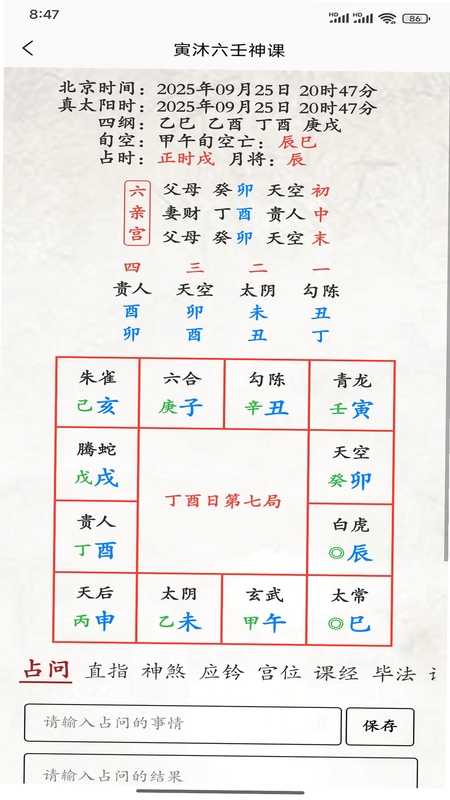 8:47
HD HD 86
寅沐六壬神课
北京时间：2025年09月25日 20时47分
真太阳时：2025年09月25日 20时47分
四纲：乙巳 乙酉 丁酉 庚戌
旬空：甲午旬空亡：辰巳
占时：正时戌 月将：辰
六亲宫
父母 癸卯 天空 初
妻财 丁酉 贵人 中
父母 癸卯 天空 末
四 三 二 一
贵人 天空 太阴 勾陈
酉 卯 未 丑
卯 酉 丑 丁
朱雀 六合 勾陈 青龙
己亥 庚子 辛丑 壬寅
腾蛇 天空
戊戌 癸卯
丁酉日第七局
贵人 白虎
丁酉 ◎辰
天后 太阴 玄武 太常
丙申 乙未 甲午 ◎巳
占问 直指 神煞 应钤 宫位 课经 毕法
请输入占问的事情 保存
请输入占问的结果